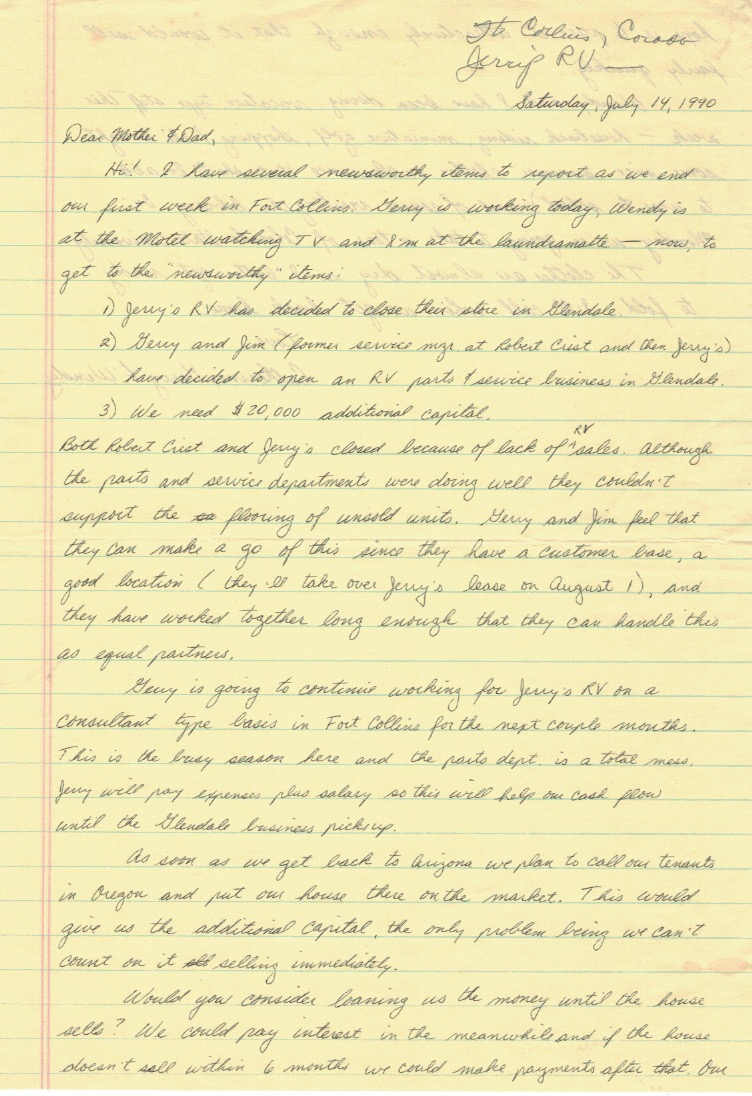 Ft. Collins,
Jerry's RV —
Saturday, July 14, 1990
Dear Mother & Dad,
Hi! I have several newsworthy items to report as we end
our first week in Fort Collins. Gerry is working today, Wendy is
at the Motel watching TV and I'm at the laundramatte — now, to
get to the "newsworthy" items:
1) Jerry's RV has decided to close their store in Glendale
2) Gerry and Jim (former service mgr. at Robert Crist and then Jerry's)
have decided to open an RV parts & service business in Glendale.
3) We need $20,000 additional capital.
Both Robert Crist and Jerry's closed because of lack of ^RV sales. Although
the parts and service departments were doing well they couldn't
support the flooring of unsold units. Gerry and Jim feel that
they can make a go of this since they have a customer base, a
good location (they'll take over Jerry's lease on August 1), and
they have worked together long enough that they can handle this
as equal partners.
Gerry is going to continue working for Jerry's RV on a
consultant type basis in Fort Collins for the next couple months.
This is the busy season here and the parts dept. is a total mess.
Jerry will pay expenses plus salary so this will help our cash flow
until the Glendale business picks up.
As soon as we get back to Arizona we plan to call our tenants
in Oregon and put our house there on the market. This would
give us the additional capital, the only problem being we can't
count on it selling immediately.
Would you consider loaning us the money until the house
sells? We could pay interest in the meanwhile and if the house
doesn't sell within 6 months we could make payments after that. Our